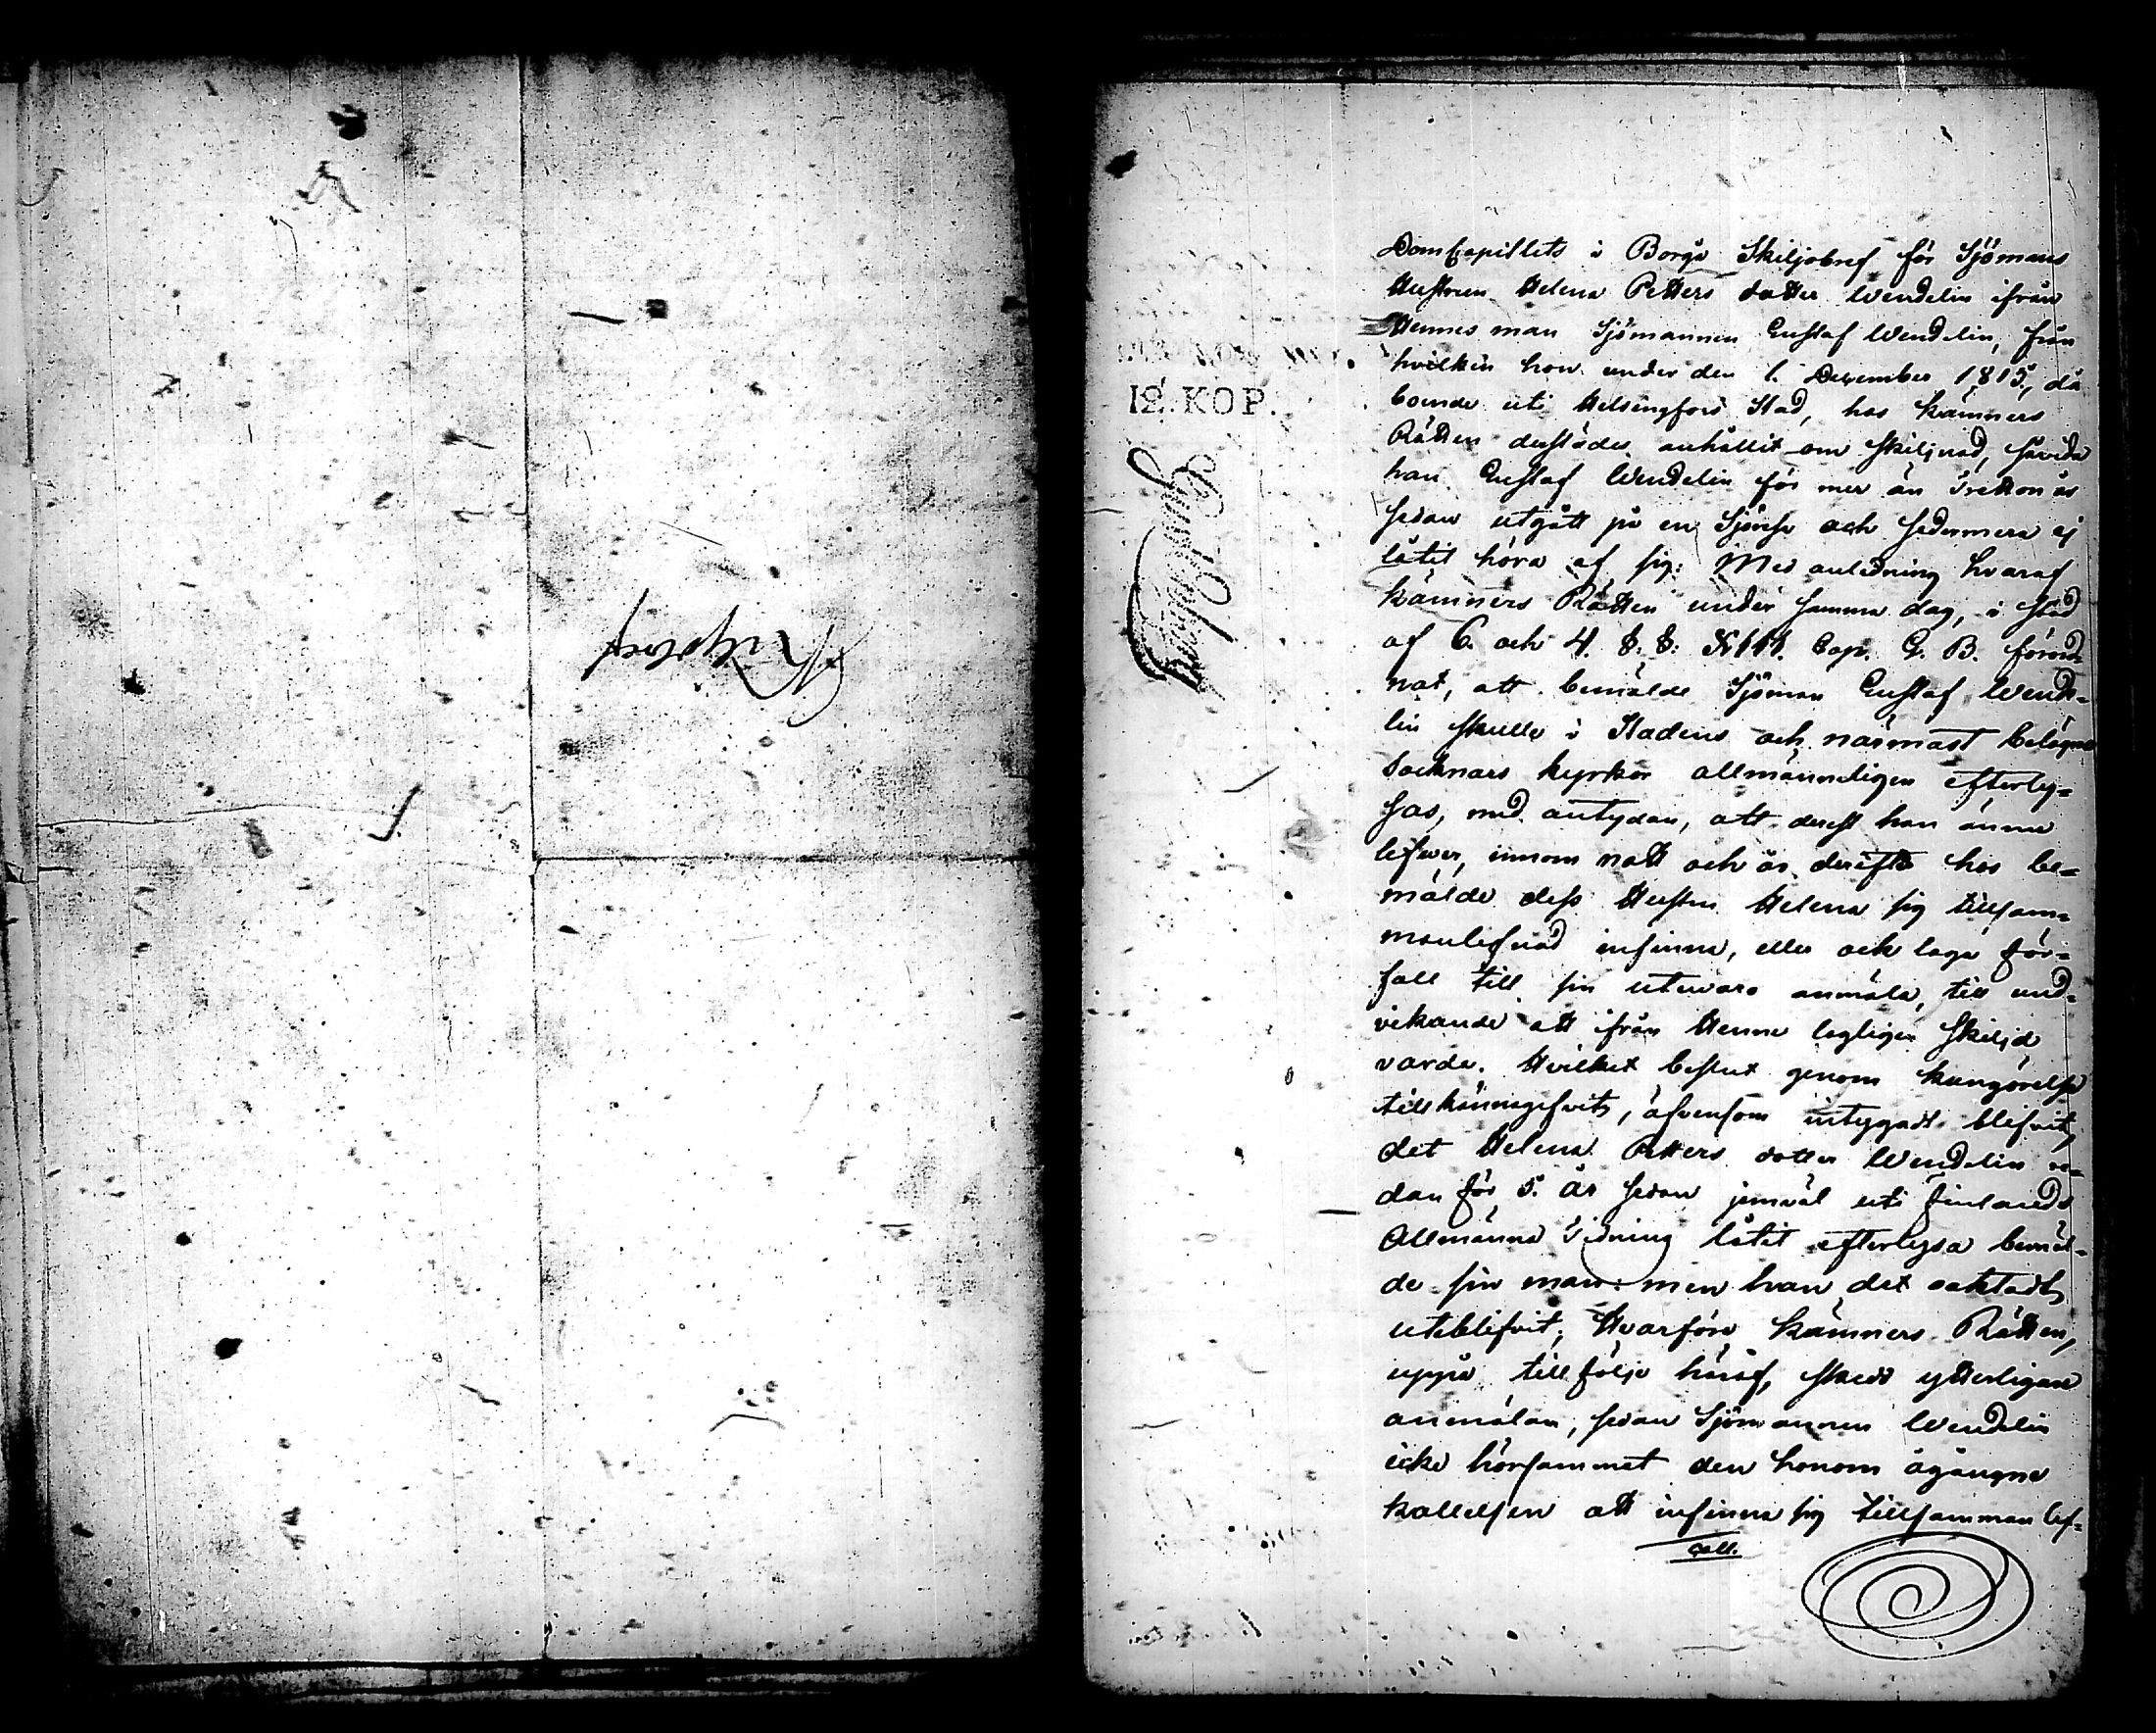 DomCapitlets i Borgå Skiljobref för Sjömans
Hustrun Helena Petters dotter Wendelin ifrån
Hennes man Sjömannen Gustaf Wendelin, från
hvilken hon under den 1. December 1815, då
boende uti Helsingfors Stad, hos Kämners
Rätten derstädes anhållit om skiljnad, såvida
han Gustaf Wendelin för mer än Tretton år
sedan utgått på en Sjöresa och sedermera ej
låtit höra af sig: Med anledning hvaraf
Kämners Rätten under samma dag, i stöd
af 6. och 4. §. §. XIII. Cap. G. B. förord-
nat, att bemälde Sjöman Gustaf Wende-
lin skulle i Stadens och närmast belägne
Socknars kyrkor allmänneligen efterly-
sas, med antydan, att derest han ännu
lefwer, innom natt och år derefter hos be-
mälde dess Hustru Helena sig till sam-
manlefnad infinna, eller ock laga för-
fall till sin utewaro anmäla, till und-
vikande att ifrån Henne lagligen skiljd
varda. Hvilket beslut genom kungörelse
tillkännagifvits, äfvensom intygadt blifvit,
det Helena Petters dotter Wendelin re-
dan för 5. år sedan jemväl uti Finlands
Allmänna Tidning låtit efterlysa bemäl-
de sin man: men han det oaktadt
uteblifvit; Hvarföre Kämners Rätten,
uppå till följe häraf, skedd ytterligare
anmälan, sedan Sjömannen Wendelin
icke hörsammat den honom ågångne
kallelsen att infinna sig till samman lef-
Coll.
12. KOP.